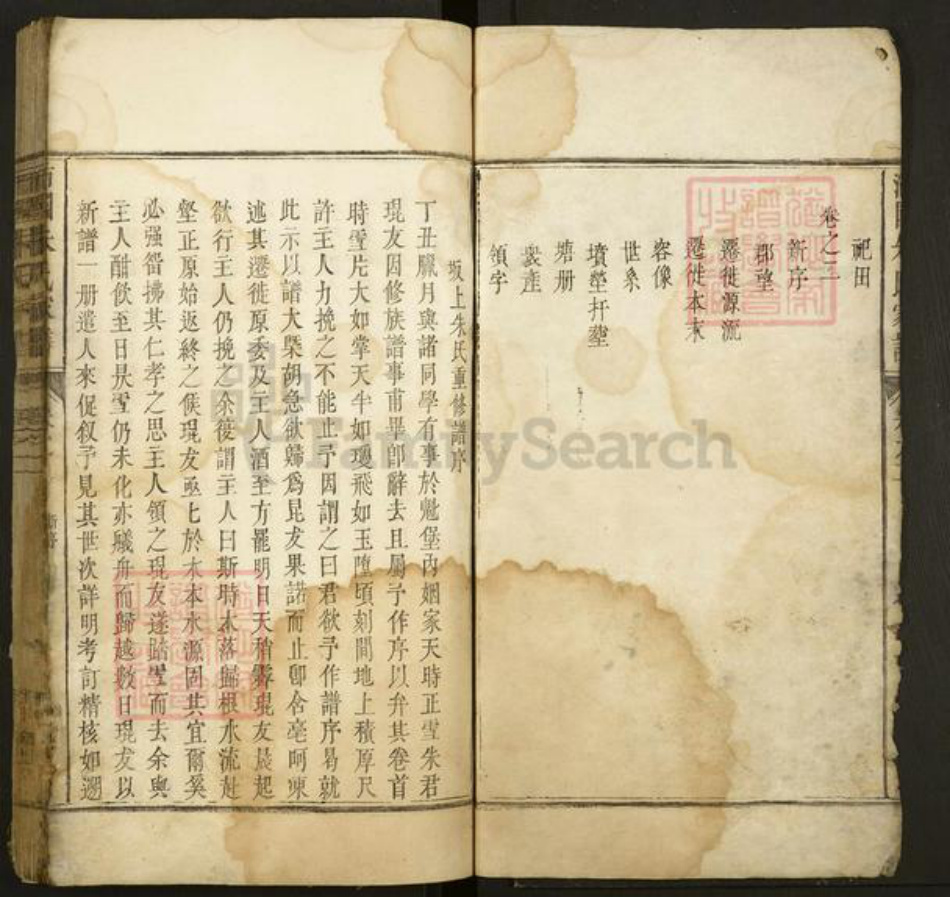 祀田
卷之二
新序
郡望
遷徙源流
遷徙本末
容像
世系
墳塋扦塟
塘册
衆產
領字
坂上朱氏重修譜序
丁丑臘月與諸同學有事於魁堡內姻家天時正雪朱君
琨友因修族譜事甫畢卽辭去且屬予作序以弁其卷首
時雪片大如掌天半如瓊飛如玉墮頃刻間地上積厚尺
許主人力挽之不能止予因謂之曰君欲予作譜序曷就
此示以譜大槩胡急欲歸爲昆友果諾而止卽含毫呵凍
述其遷徙原委及主人酒至方罷明日天稍霽琨友晨起
欲行主人仍挽之余復謂主人曰斯時木落歸根水流赴
壑正原始返終之候琨友亟亟於木本水源固其宜爾奚
必强畱拂其仁孝之思主人領之琨友遂踏雪而去余與
主人酣飲至日昃雪仍未化亦艤舟而歸越數日琨友以
新譜一册遣人來促叙予見其世次詳明考訂精核如遡
FamilySearch